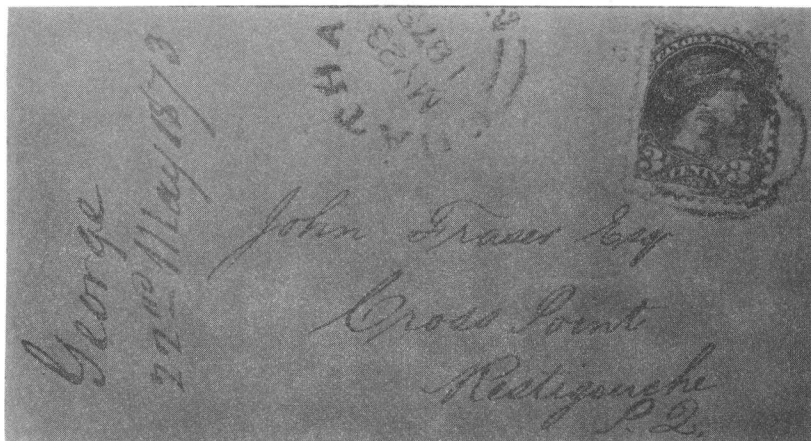 George
22nd May 1873
ATHA
MY 23
187
CANADA POSTAGE
3 CENTS 3
John Fraser Esq
Cross Point
Restigouche
P. Q.